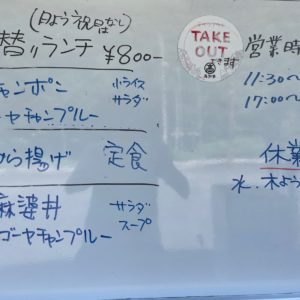 (日よう祝日はなし)
替りランチ ¥800-
ャンポン 小ライス
サラダ
ーヤチャンプルー
から揚げ 定食
麻婆丼 サラダ
スープ
ゴーヤチャンプルー
TAKE
OUT
できます
営業時
11:30～
17:00～
休業
水、木よう